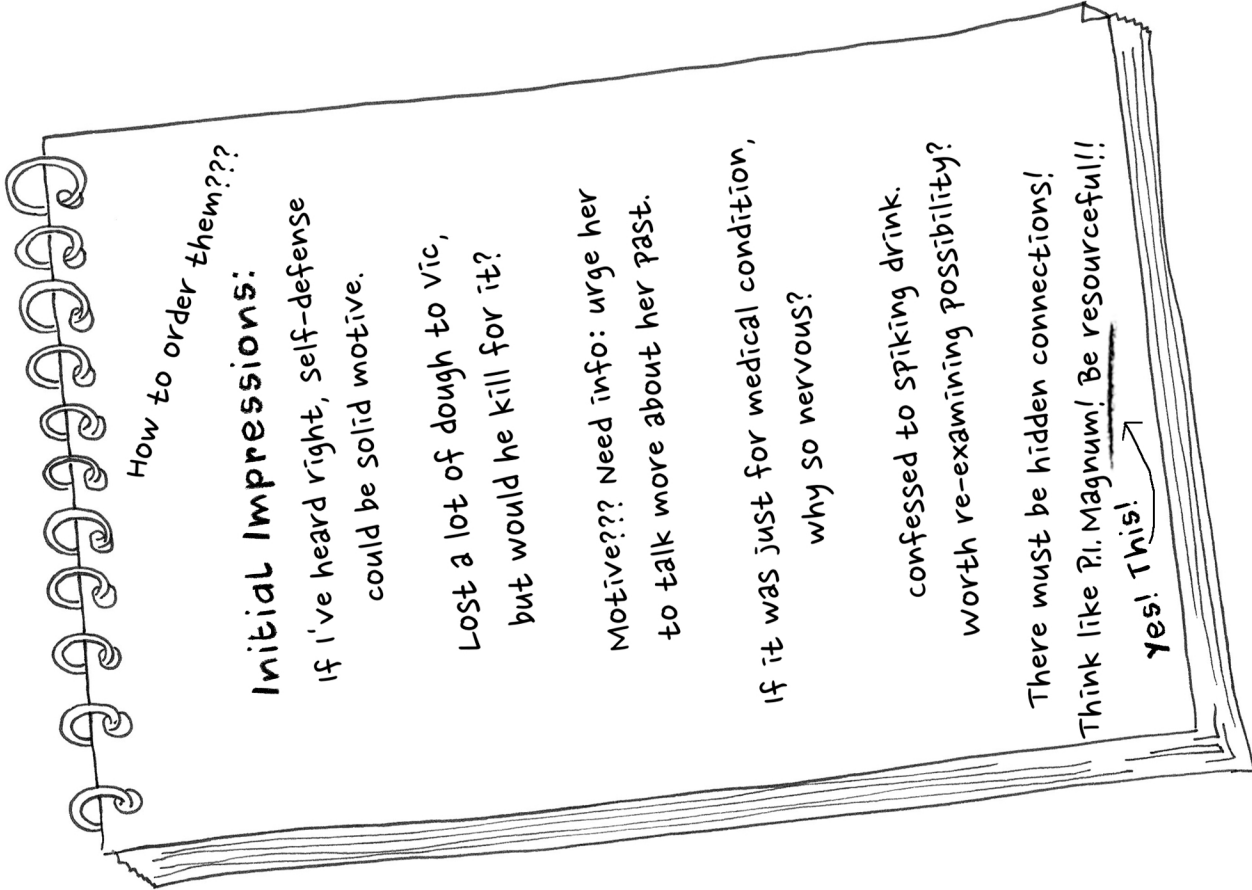 How to order them???
Initial Impressions:
If I've heard right, self-defense
could be solid motive.
Lost a lot of dough to vic,
but would he kill for it?
Motive??? Need info: urge her
to talk more about her past.
If it was just for medical condition,
why so nervous?
confessed to spiking drink.
worth re-examining possibility?
There must be hidden connections!
Think like P.I. Magnum! Be resourceful!!
Yes! This!